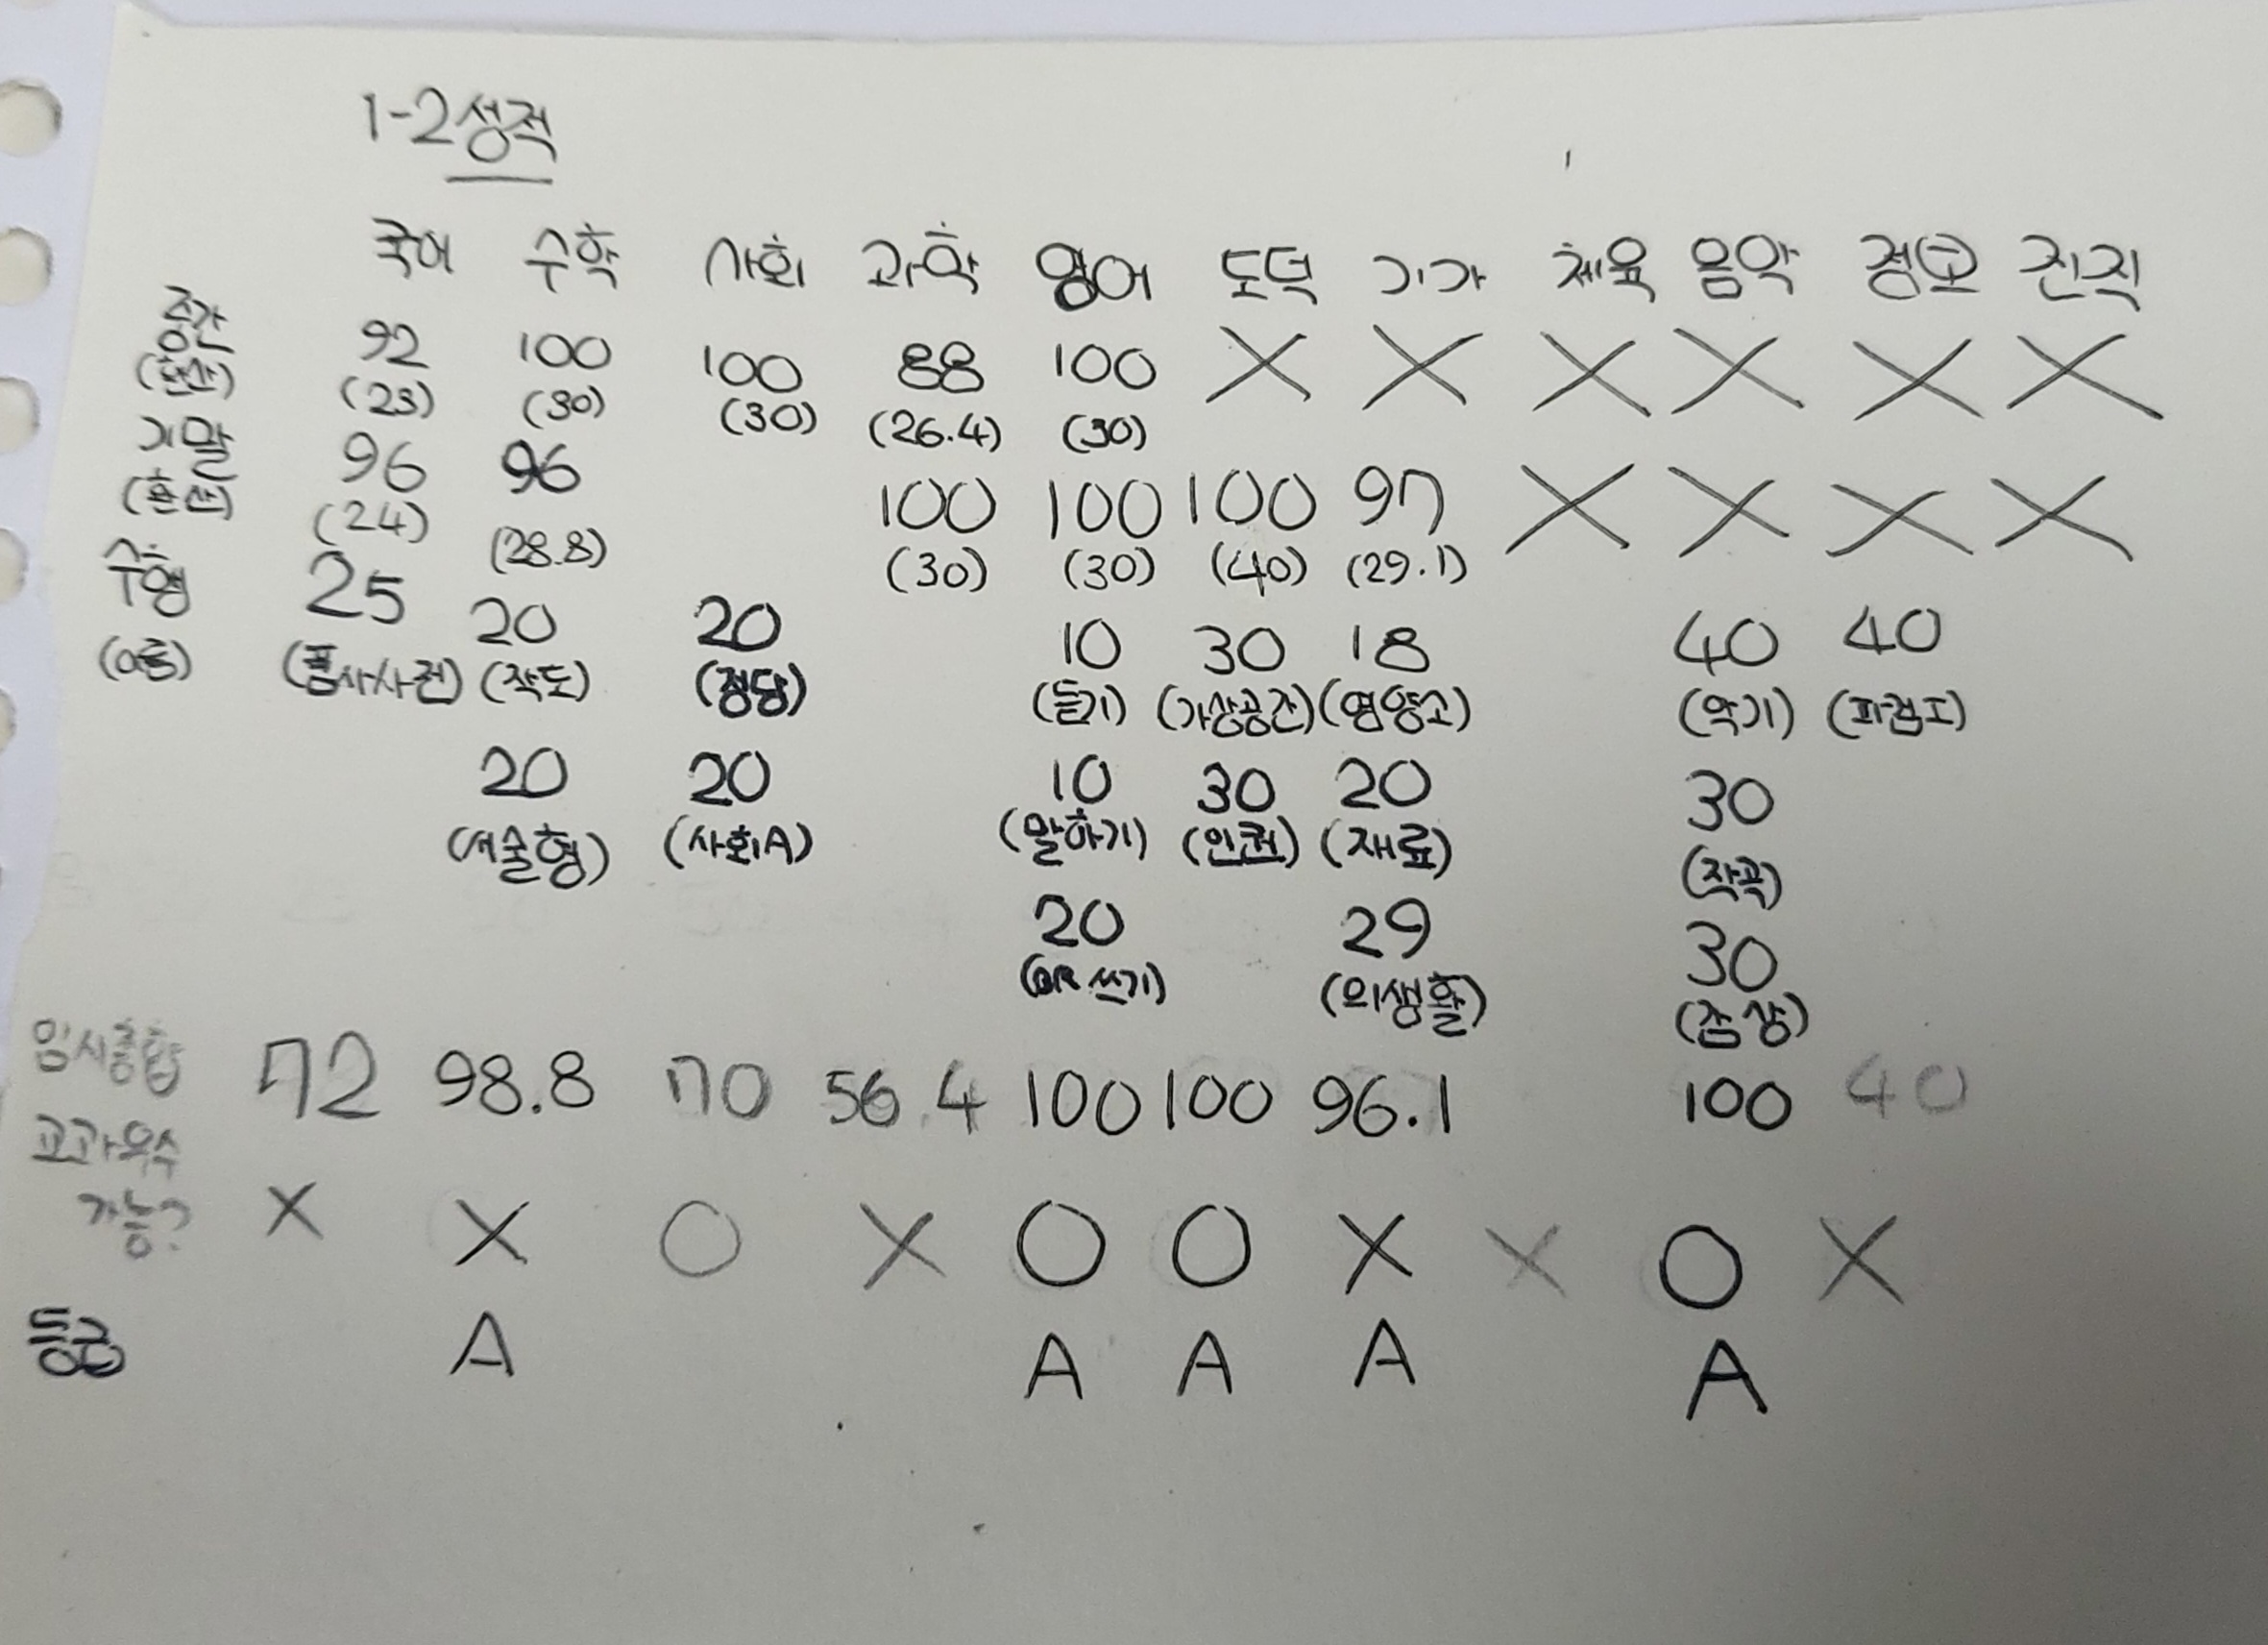 1-2 성적
국어 수학 사회 과학 영어 도덕 기가 체육 음악 정보 진직
중간 92 100 100 88 100 X X X X X X
(환산) (23) (30) (30) (26.4) (30)
기말 96 96 100 100 100 97 X X X X
(환산) (24) (28.8) (30) (30) (40) (29.1)
수행 25 20 20 10 30 18 40 40
(이름) (품사사전) (작도) (정당) (듣기) (가상공간) (영양소) (악기) (피컴I)
20 20 10 30 20 30
(서술형) (사회A) (말하기) (인권) (재료) (작곡)
20 29 30
(QR 쓰기) (의생활) (감상)
임시총합 72 98.8 70 56.4 100 100 96.1 100 40
교과우수
가능? X X O X O O X X O X
등급 A A A A A